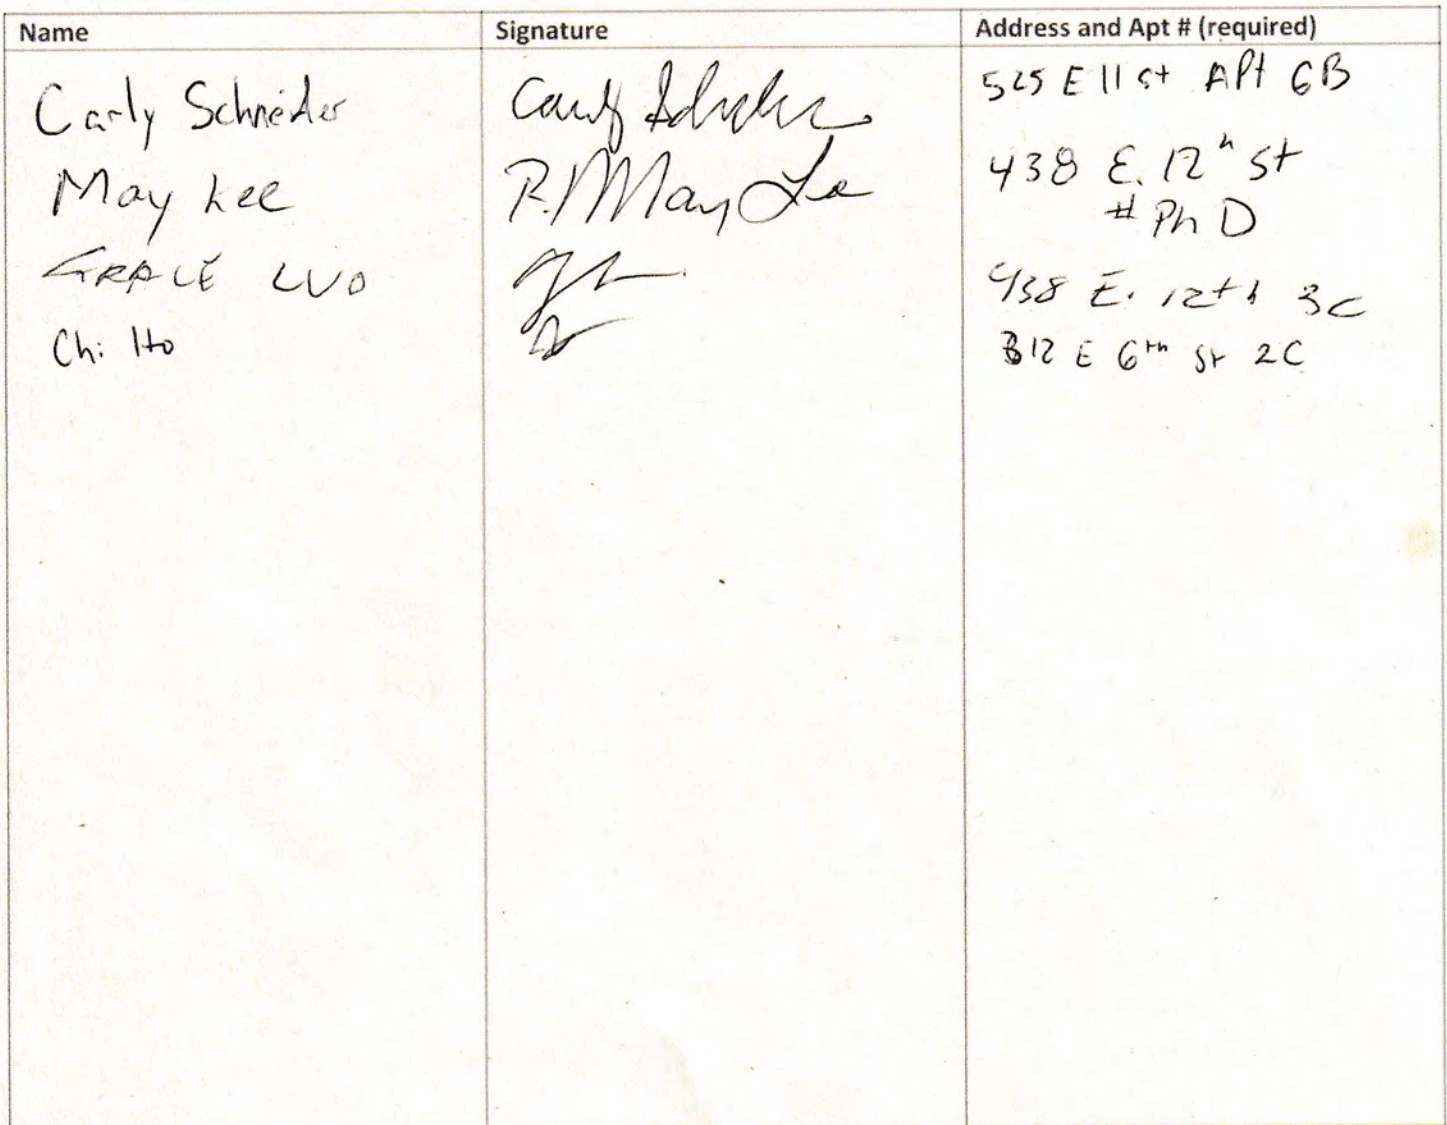 Name Signature Address and Apt # (required)
Carly Schneider Carly Schneider 525 E 11 st Apt 6B
May Lee P. May Lee 438 E. 12th St
# Ph D
GRACE LUO 438 E. 12th 3C
Chi Ito 312 E 6th St 2C